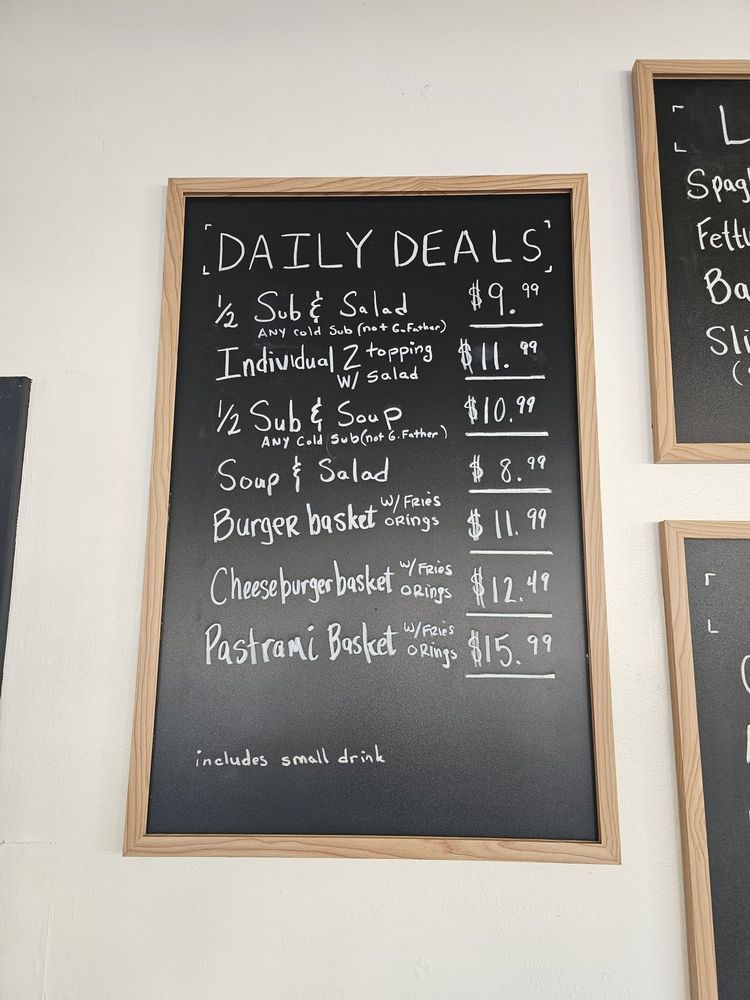 DAILY DEALS
1/2 Sub & Salad $9.99
ANY cold Sub (not G.Father)
Individual 2 topping $11.99
W/ Salad
1/2 Sub & Soup $10.99
ANY Cold Sub (not G.Father)
Soup & Salad $8.99
Burger basket W/ FRIES ORings $11.99
Cheeseburger basket W/ FRIES ORings $12.49
Pastrami Basket W/ FRIES ORings $15.99
includes small drink